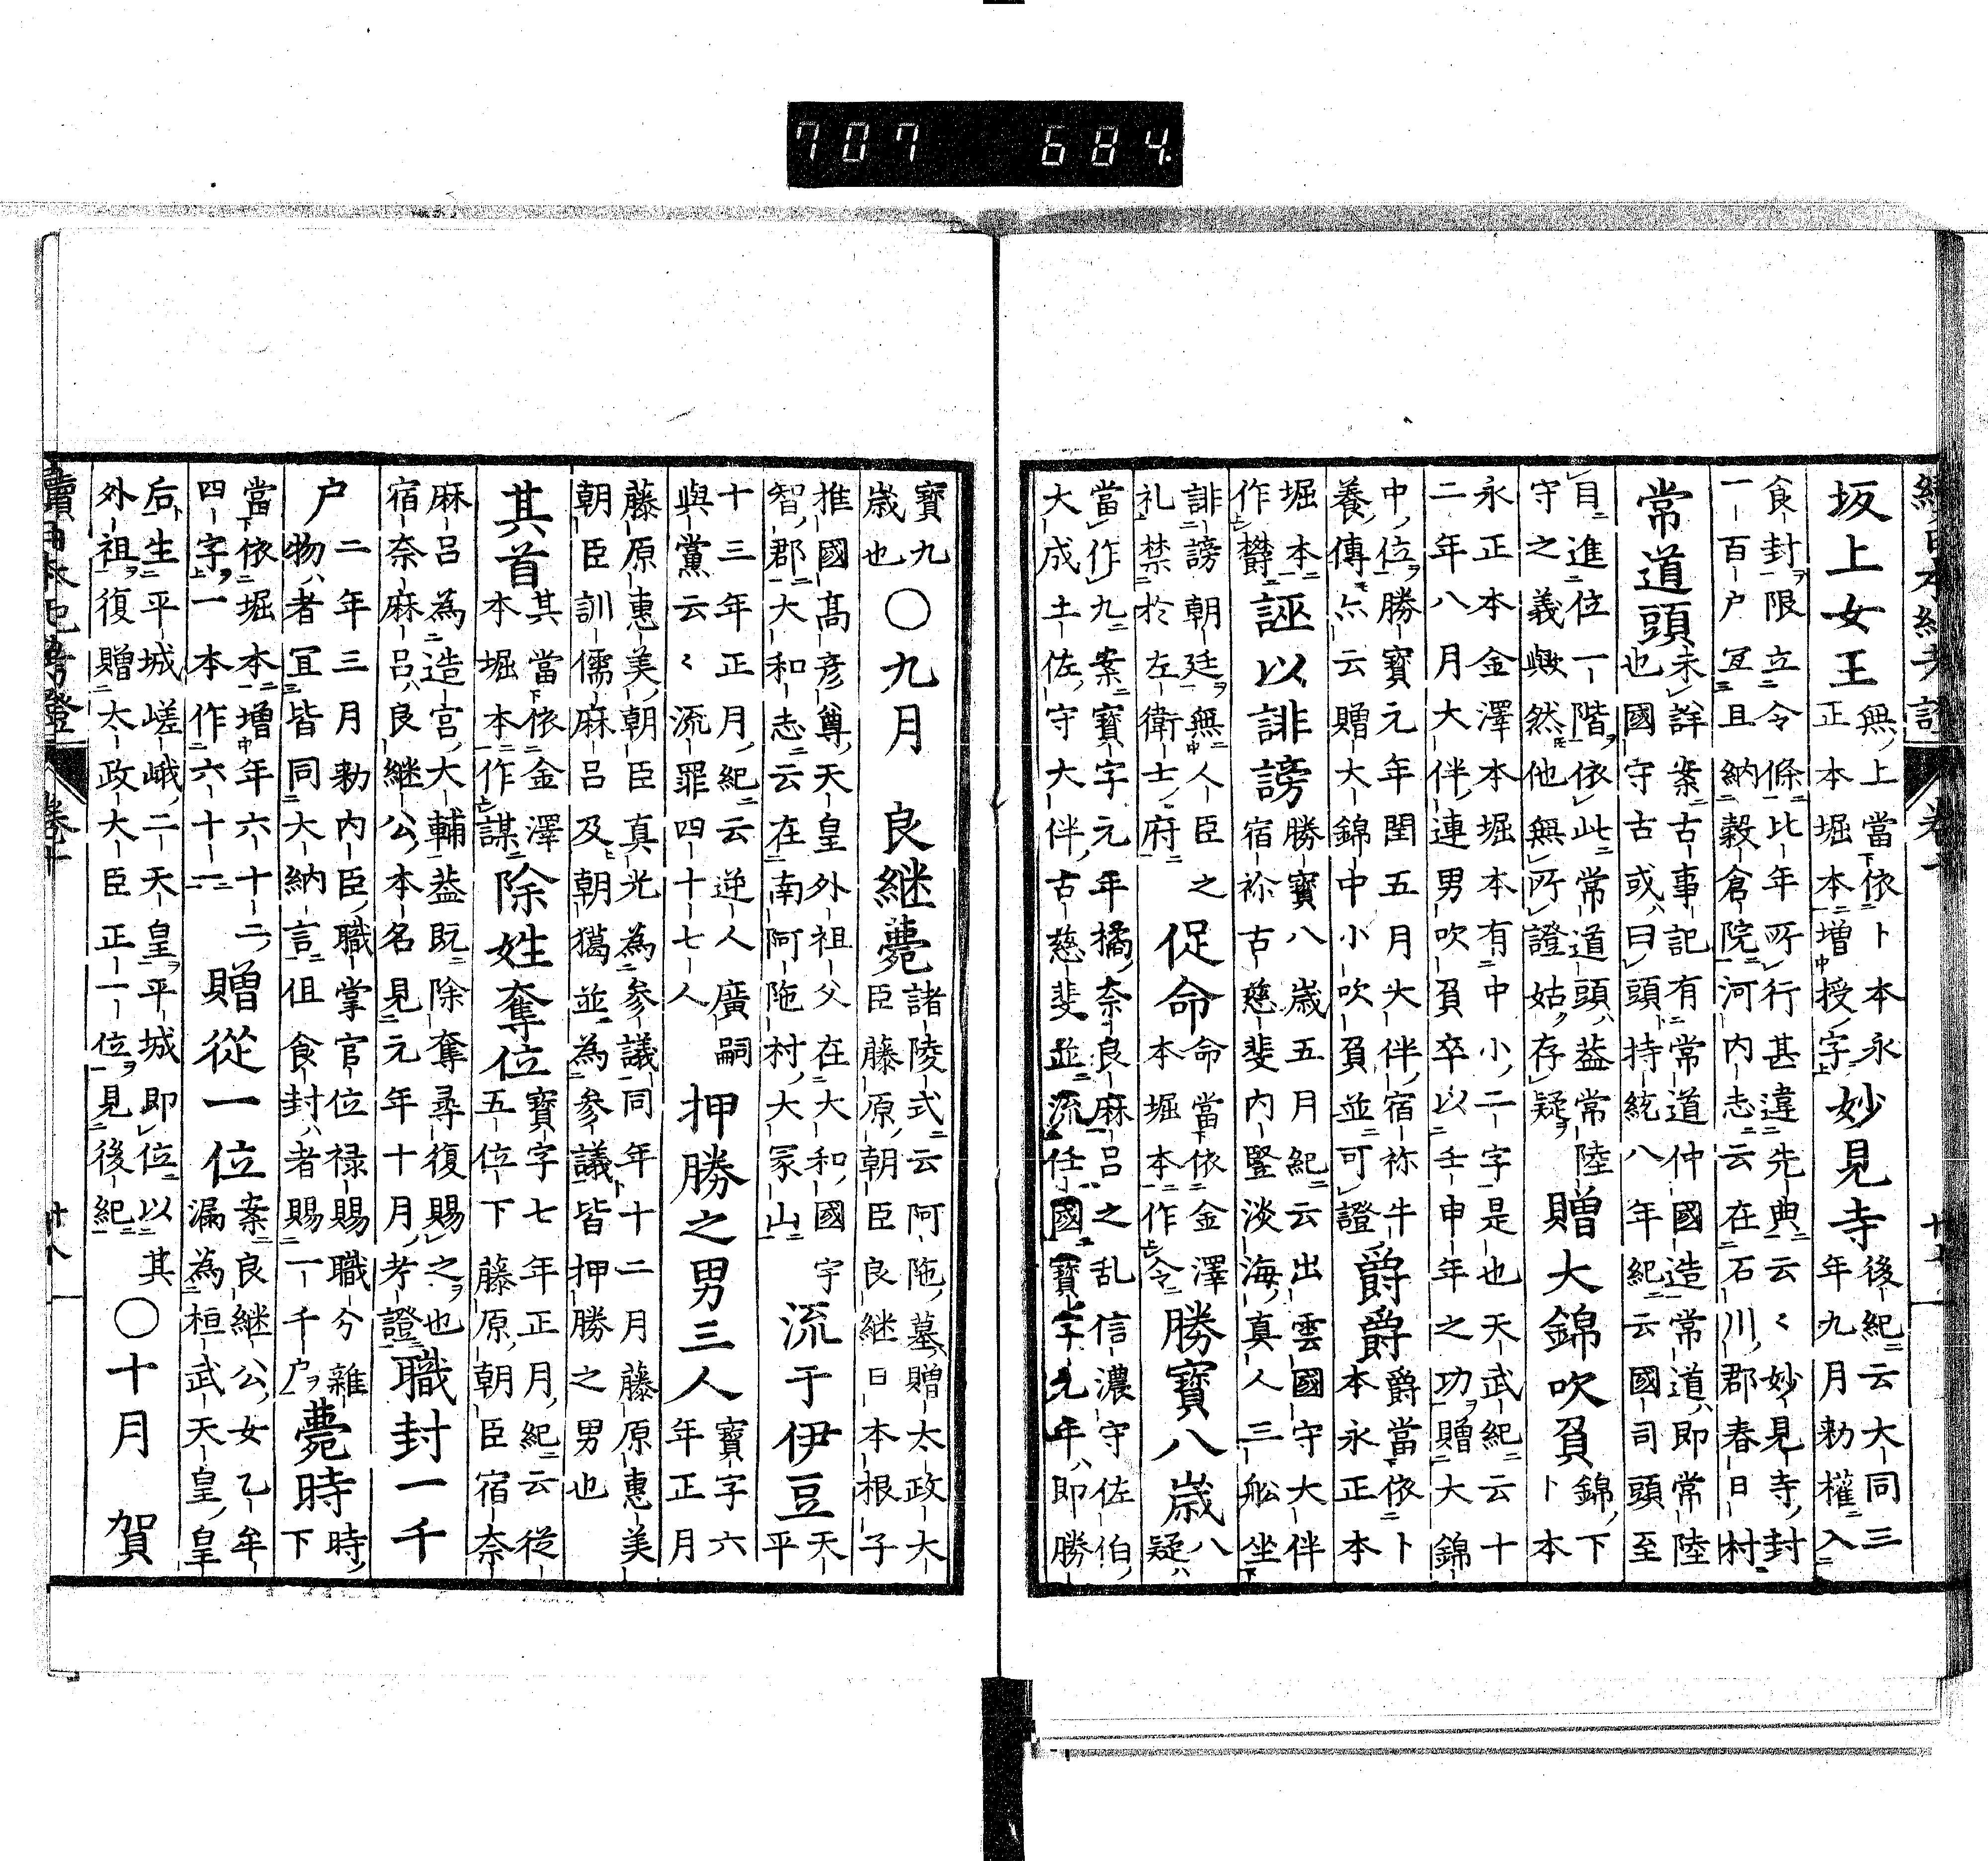 707 684
坂上女王 無上當依卜本永正本堀本増授字 妙見寺 後紀云大同三年九月勅權入
食封限立令條比年所行甚違先典云々妙見寺封一百戸宜且納穀倉院河内志云在石川郡春日村
常道頭 未詳案古事記有常道仲國造常道即常陸也國守古或曰頭持統八年紀云國司頭至
目進位一階依此常道頭蓋常陸守之義歟然他無所證姑存疑 贈大錦吹負 錦下卜本
永正本金澤本堀本有中小二字是也天武紀云十二年八月大伴連男吹負卒以壬申年之功贈大錦
中位勝寶元年閏五月大伴宿祢牛養傳亦云贈大錦中小吹負並可證 爵爵 爵當依卜本永正本
堀本作欝 誣以誹謗 勝寶八歳五月紀云出雲國守大伴宿祢古慈斐内竪淡海真人三舩坐
誹謗朝廷無人臣之礼禁於左衛士府 促命 命當依金澤本堀本作令 勝寶八歳 八疑
當作九案寶字元年橘奈良麻呂之乱信濃守佐伯大成土佐守大伴古慈斐並流任國寶字元年即勝
寶九歳也 〇九月 良継薨 諸陵式云阿陁墓贈太政大臣藤原朝臣良継日本根子
推國高彦尊天皇外祖父在大和國宇智郡大和志云在南阿陁村大冡山 流于伊豆 天平
十三年正月紀云逆人廣嗣與黨云々流罪四十七人 押勝之男三人 寶字六年正月
藤原惠美朝臣真光為參議同年十二月藤原惠美朝臣訓儒麻呂及朝獦並為參議皆押勝之男也
其首 其當依金澤本堀本作謀 除姓奪位 寶字七年正月紀云從五位下藤原朝臣宿奈
麻呂為造宮大輔蓋既除奪尋復賜之也宿奈麻呂良継公本名見元年十月考證 職封一千
戸 二年三月勅内臣職掌官位禄賜職分雜物者宜皆同大納言但食封者賜一千戸 薨時 時下
當依堀本増年六十二四字一本作六十一 贈從一位 案良継公女乙牟漏為桓武天皇皇
后生平城嵯峨二天皇平城即位以其外祖復贈太政大臣正一位見後紀 〇十月 賀